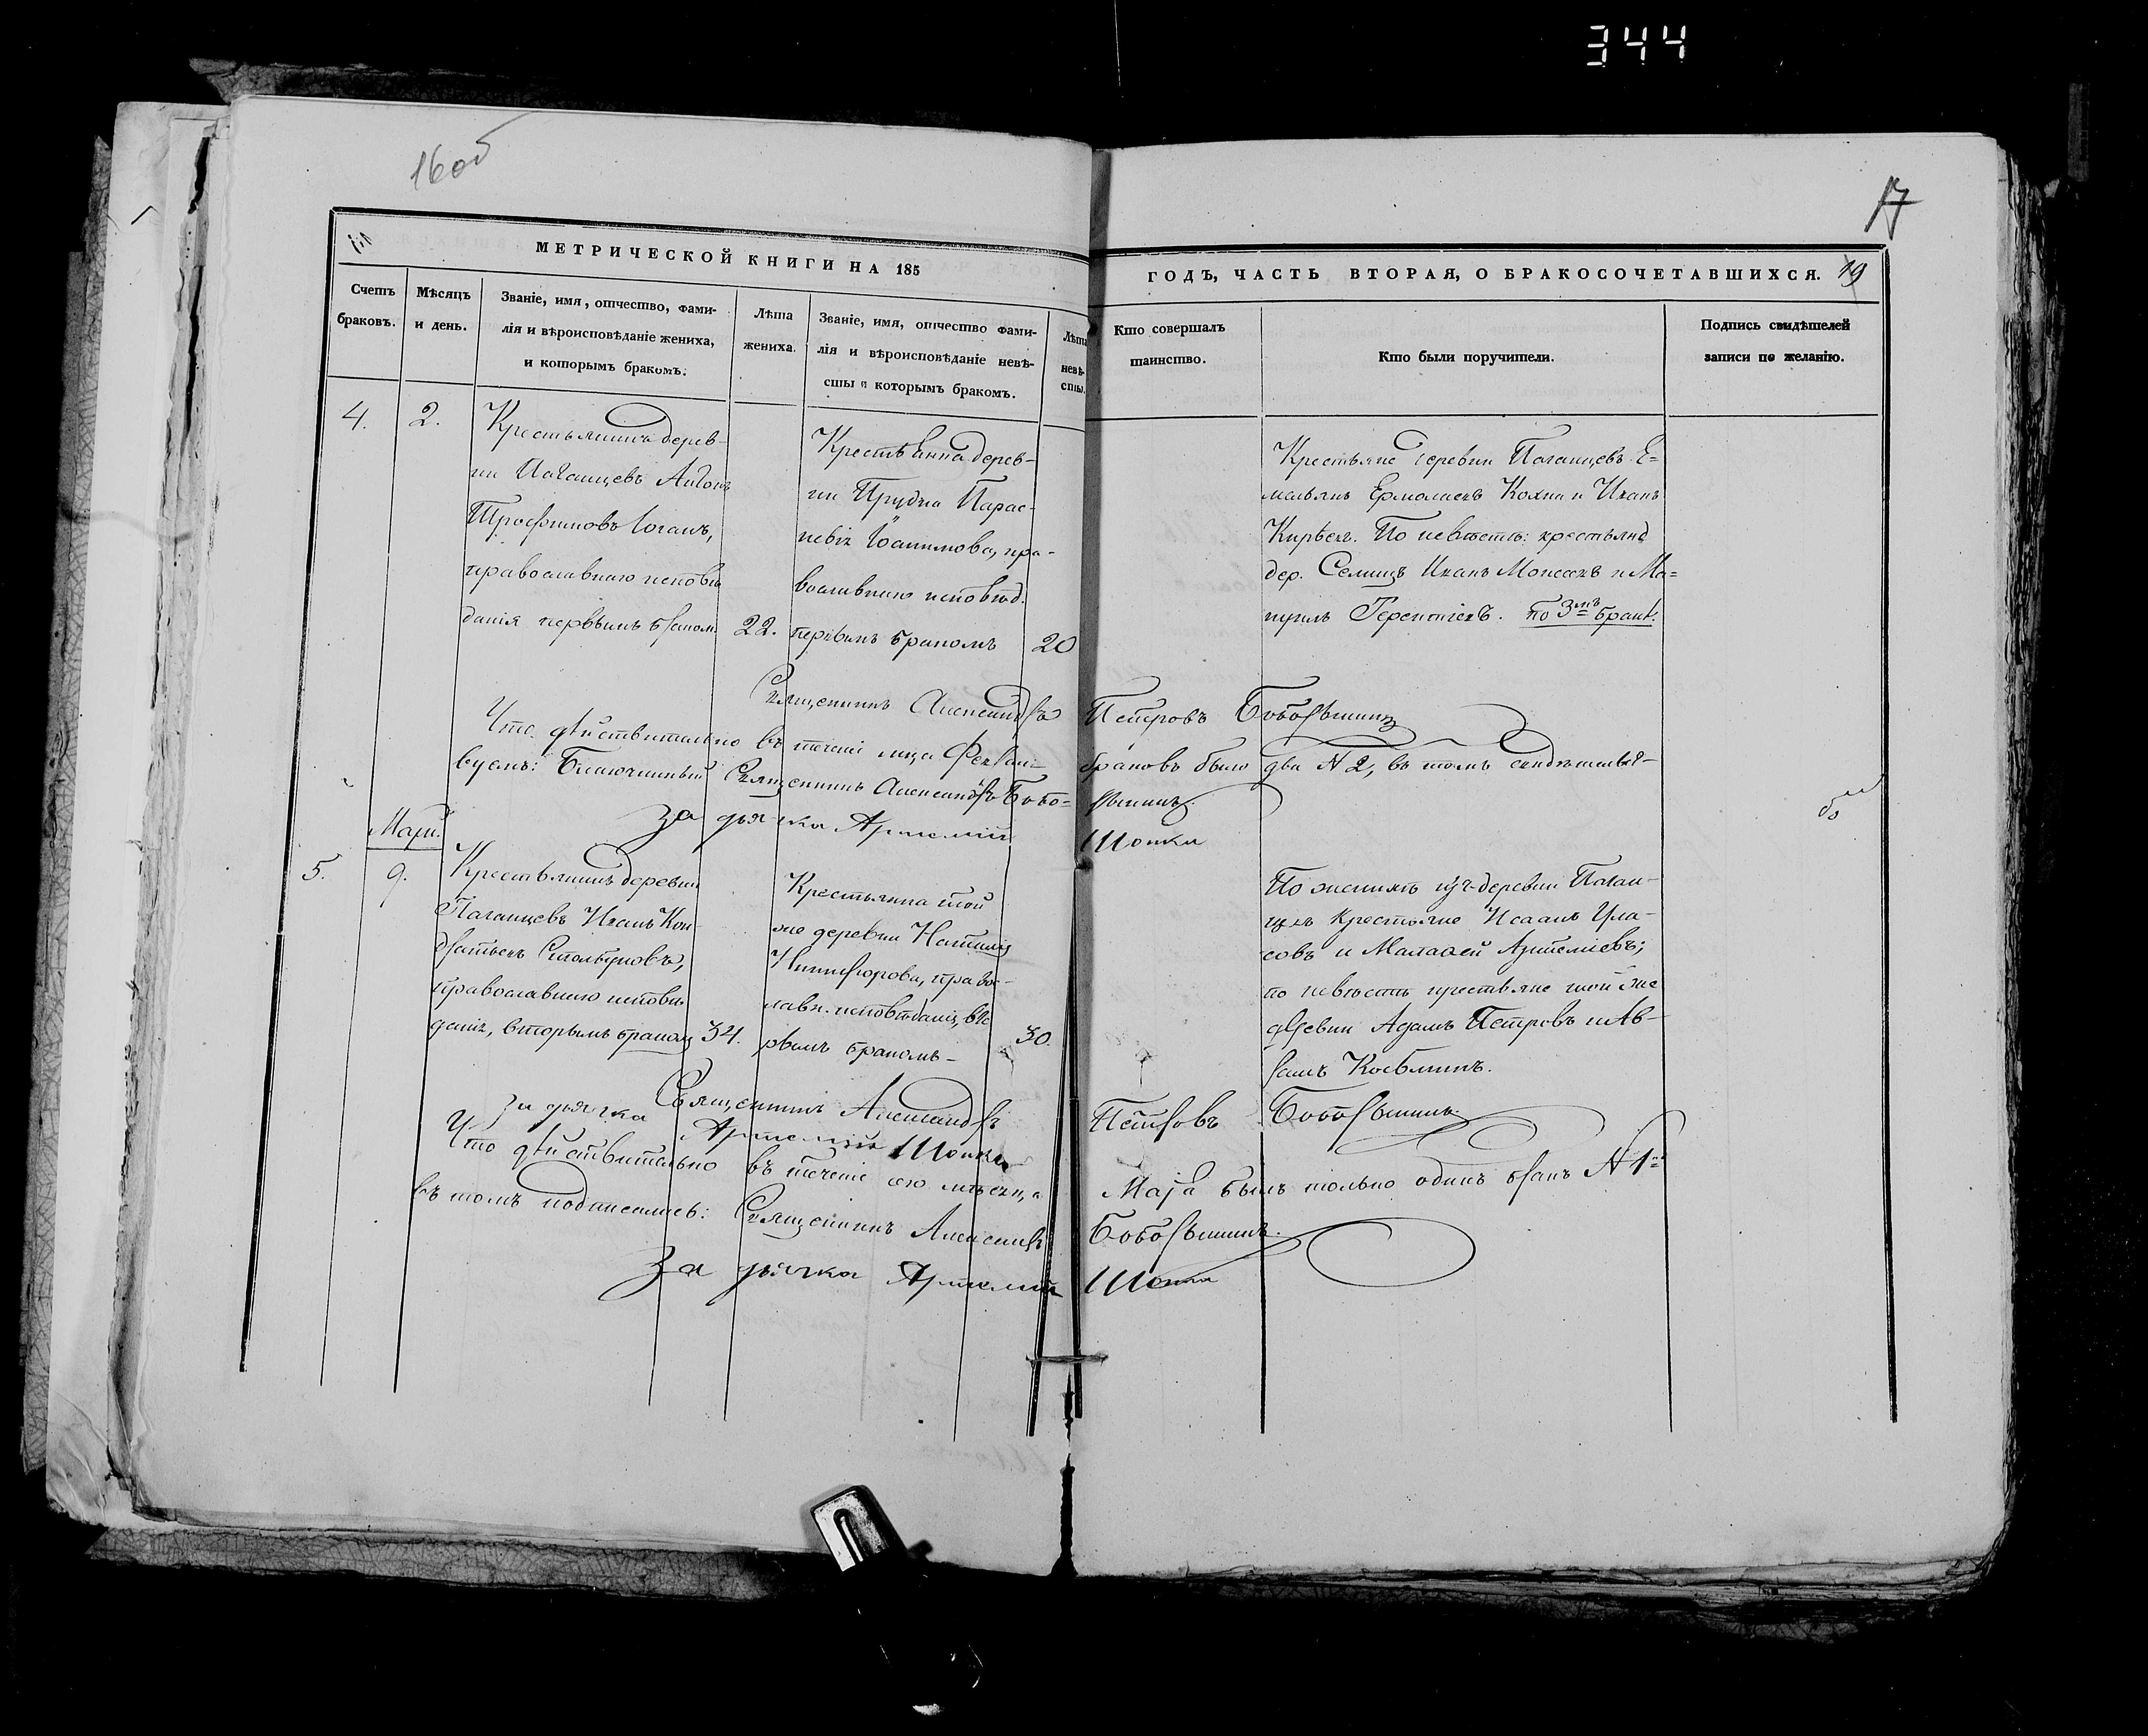 344
16об
17
МЕТРИЧЕСКОЙ КНИГИ НА 185
ГОДЪ, ЧАСТЬ ВТОРАЯ, О БРАКОСОЧЕТАВШИХСЯ. 19
Счетъ браковъ.
Мѣсяцъ и день.
Званіе, имя, отчество, фами-
лія и вѣроисповѣданіе жениха,
и которымъ бракомъ.
Лѣта
жениха.
Званіе, имя, отчество фами-
лія и вѣроисповѣданіе невѣ-
сты и которымъ бракомъ.
Лѣта
невѣ-
сты.
Кто совершалъ
таинство.
Кто были поручители.
Подпись свидѣтелей
записи по желанію.
4.
2.
Крестьянинъ дерев-
ни Паганцевъ Антонъ
Трофимовъ
православнаго исповѣ
данія первымъ браком.
22.
Крестьянка дерев-
ни Прудка Парас-
пра-
вославнаго исповѣд.
первымъ бракомъ
20
Крестьяне деревни Паганцевъ Е=
мельянъ Ермолаевъ и Иванъ
По невѣстѣ: крестьяне
дер. Селищъ Иванъ и Ма=
нуилъ Терентіевъ. по 3мъ брак.
Священникъ Александръ Петровъ
Что дѣйствительно въ теченіи мца Феврал= браковъ было два N 2, въ томъ свидѣтельст-
вуемъ: Благочинный Священникъ Александръ
За дьячка Артемій Шопка
Март.
5.
9.
Крестьянинъ деревни
Паганцевъ Иванъ Кон-
дратьевъ Столбуновъ,
православнаго исповѣ
данія, вторымъ браком
34.
Крестьянка той
же деревни Наталія
Никифорова, право-
славн. исповѣданія, пе
рвымъ бракомъ-
30.
По женихѣ изъ деревни Паган-
цевъ крестьяне Исаакъ Ула-
совъ и Малафей Артеміевъ;
по невѣстѣ крестьяне той же
деревни Адамъ Петровъ и Ав-
рамъ
Священникъ Александръ Петровъ
За дьячка Артемій Шопка
Что дѣйствительно въ теченіе сего мѣсяца Марта былъ только одинъ бракъ N 1й
въ томъ подписались: Священникъ Александръ
За дьячка Артемій Шопка